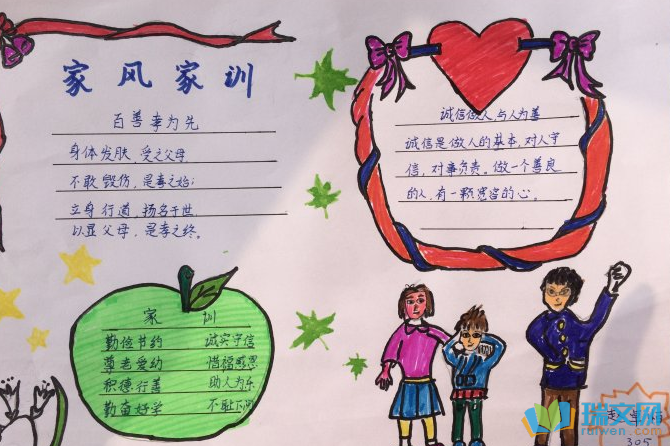 家风家训
百善孝为先
身体发肤,受之父母,
不敢毁伤,是孝之始;
立身行道,扬名于世,
以显父母,是孝之终。
诚信做人与人为善
诚信是做人的基本,对人守
信,对事负责。做一个善良
的人,有一颗宽容的心。
家 训
勤俭节约 诚实守信
尊老爱幼 惜福感恩
积德行善 助人为乐
勤奋好学 不耻下问
305
瑞文网
ruiwen.com